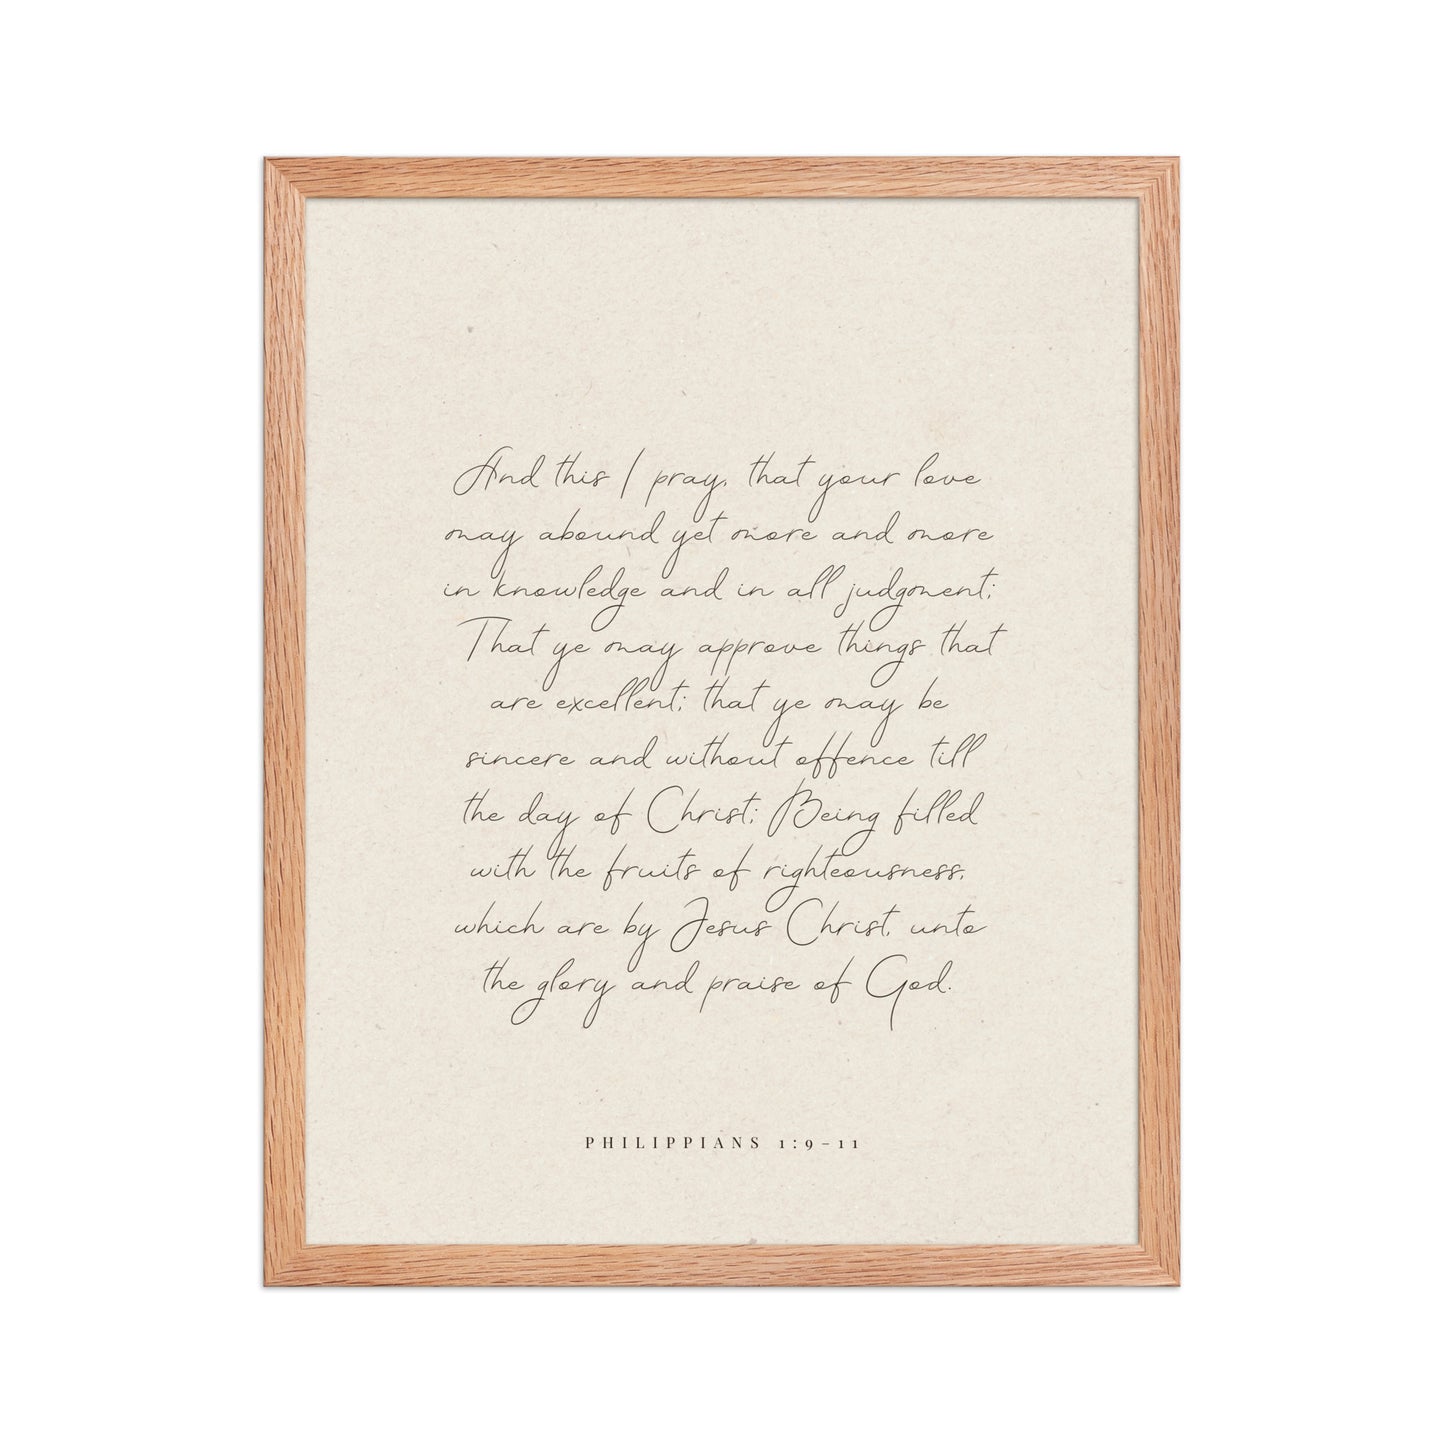 And this I pray, that your love
may abound yet more and more
in knowledge and in all judgment;
That ye may approve things that
are excellent; that ye may be
sincere and without offence till
the day of Christ; Being filled
with the fruits of righteousness,
which are by Jesus Christ, unto
the glory and praise of God.
PHILIPPIANS 1:9-11